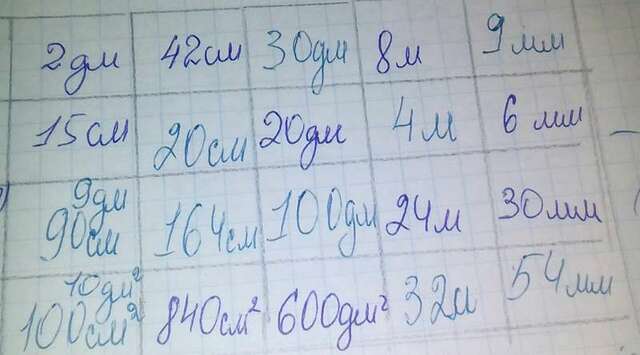 2дм 42см 30дм 8м 9мм
15см 20см 20дм 4м 6мм
9дм
90см 164см 100дм 24м 30мм
10дм²
100см² 840см² 600дм² 32м 54мм